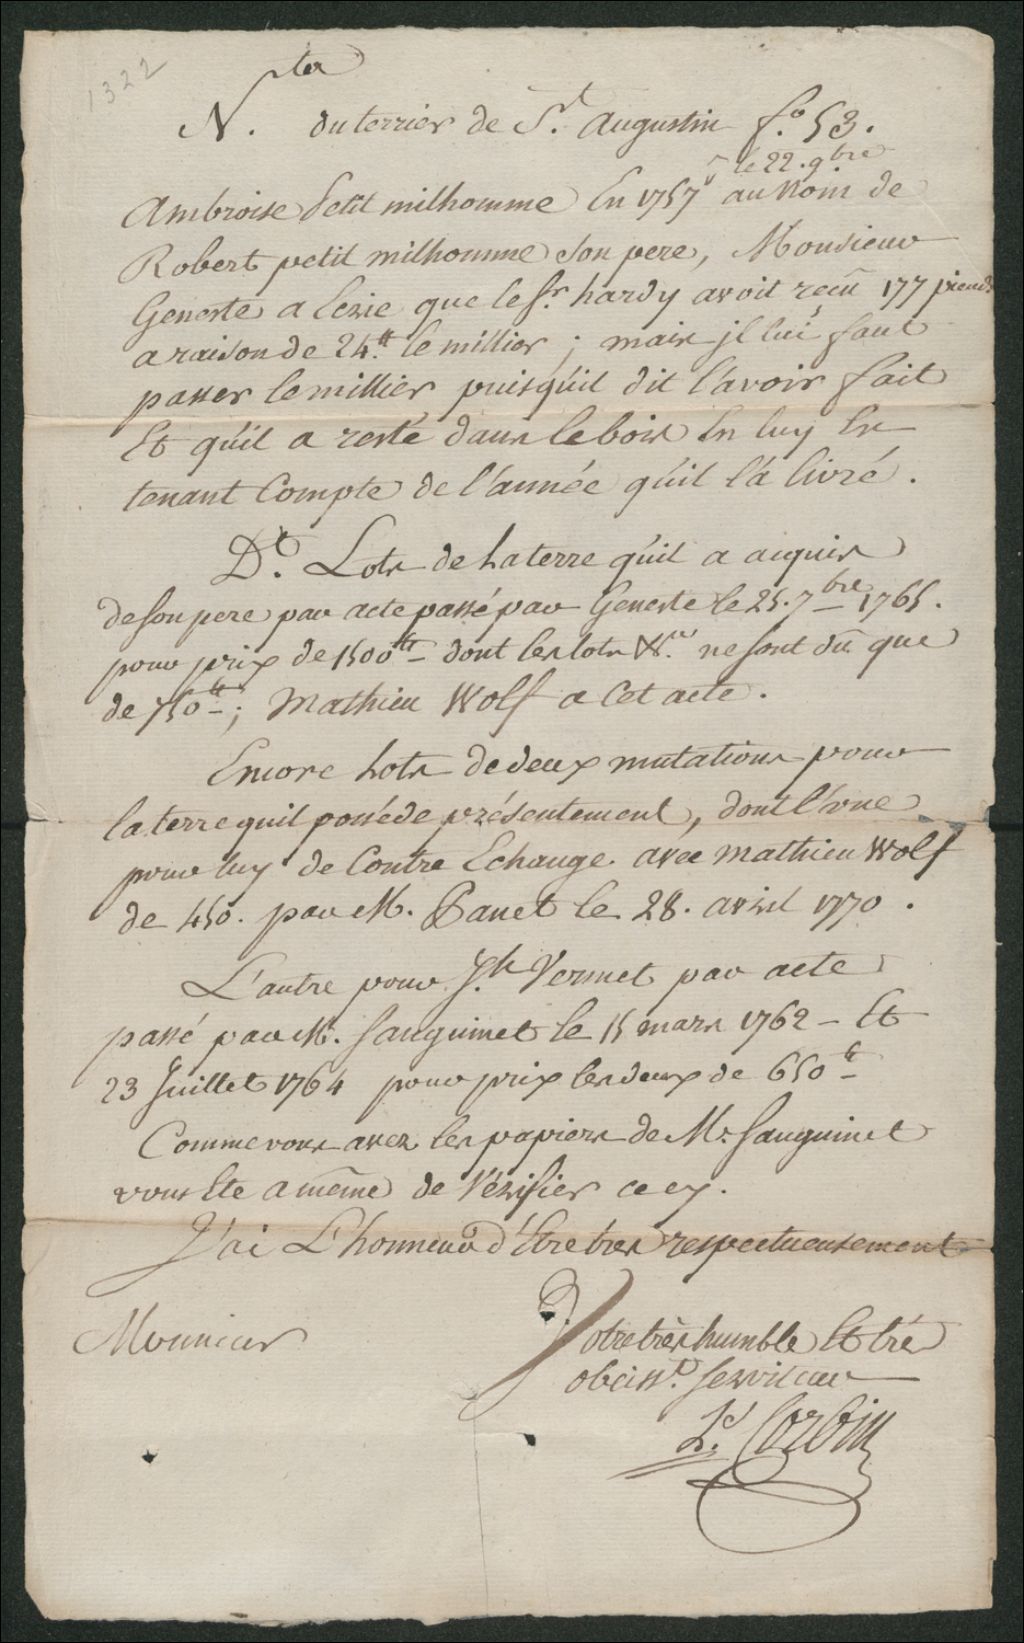 1322
N.ta du terrier de St. Augustin f.o 53.
le 22. 9bre
Ambroise Petit milhomme En 1757 au Nom de
Robert petit milhomme son pere, Monsieur
Geneste a Ecrie que le Sr. hardy avoit reçû 177 pieuds
a raison de 24.tt le millier ; mais jl lui faut
passer le millier puisqúil dit l'avoir fait
Et qúil a resté dans le bois En luy En
tenant Compte de l'année qúil l'a livré.
Dt. Lots de La terre qúil a aiquis
de son pere par acte passé par Geneste le 25. 7bre 1765.
pour prix de 1500tt dont les lots &c. ne sont dû que
de 750tt ; Mathieu Wolf a Cet acte.
Encore Lots de deux mutations pour
la terre quil posséde présentement, dont l'une
pour luy de Contre Echange. avec Mathieu Wolf
de 450. par M. Panet le 28. avril 1770.
L'autre pour Jh. Vermet par acte
passé par M. Sanguinet le 15 mars 1762 - Et
23 Juillet 1764 pour prix les deux de 650tt
Comme vous avez les papiers de Mr Sanguinet
vous Ete a même de Vérifier cecy.
J'ai L'honneur d'Etre tres respectueusement
Monsieur
Votre très humble Et tré
obeisst. Serviteur
Ls. Corbin